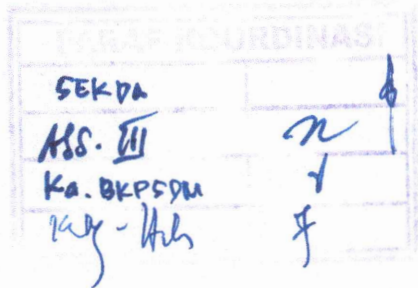 PARAF KOORDINASI
SEKDA
ASS. III
Ka. BKPSDM